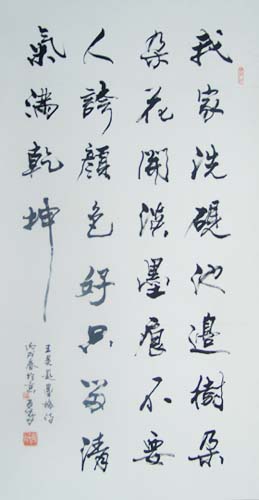 我家洗硯池邊樹朵
朵花開淡墨痕不要
人誇顏色好只留清
氣滿乾坤
王冕題墨梅詩
丙戌春於京